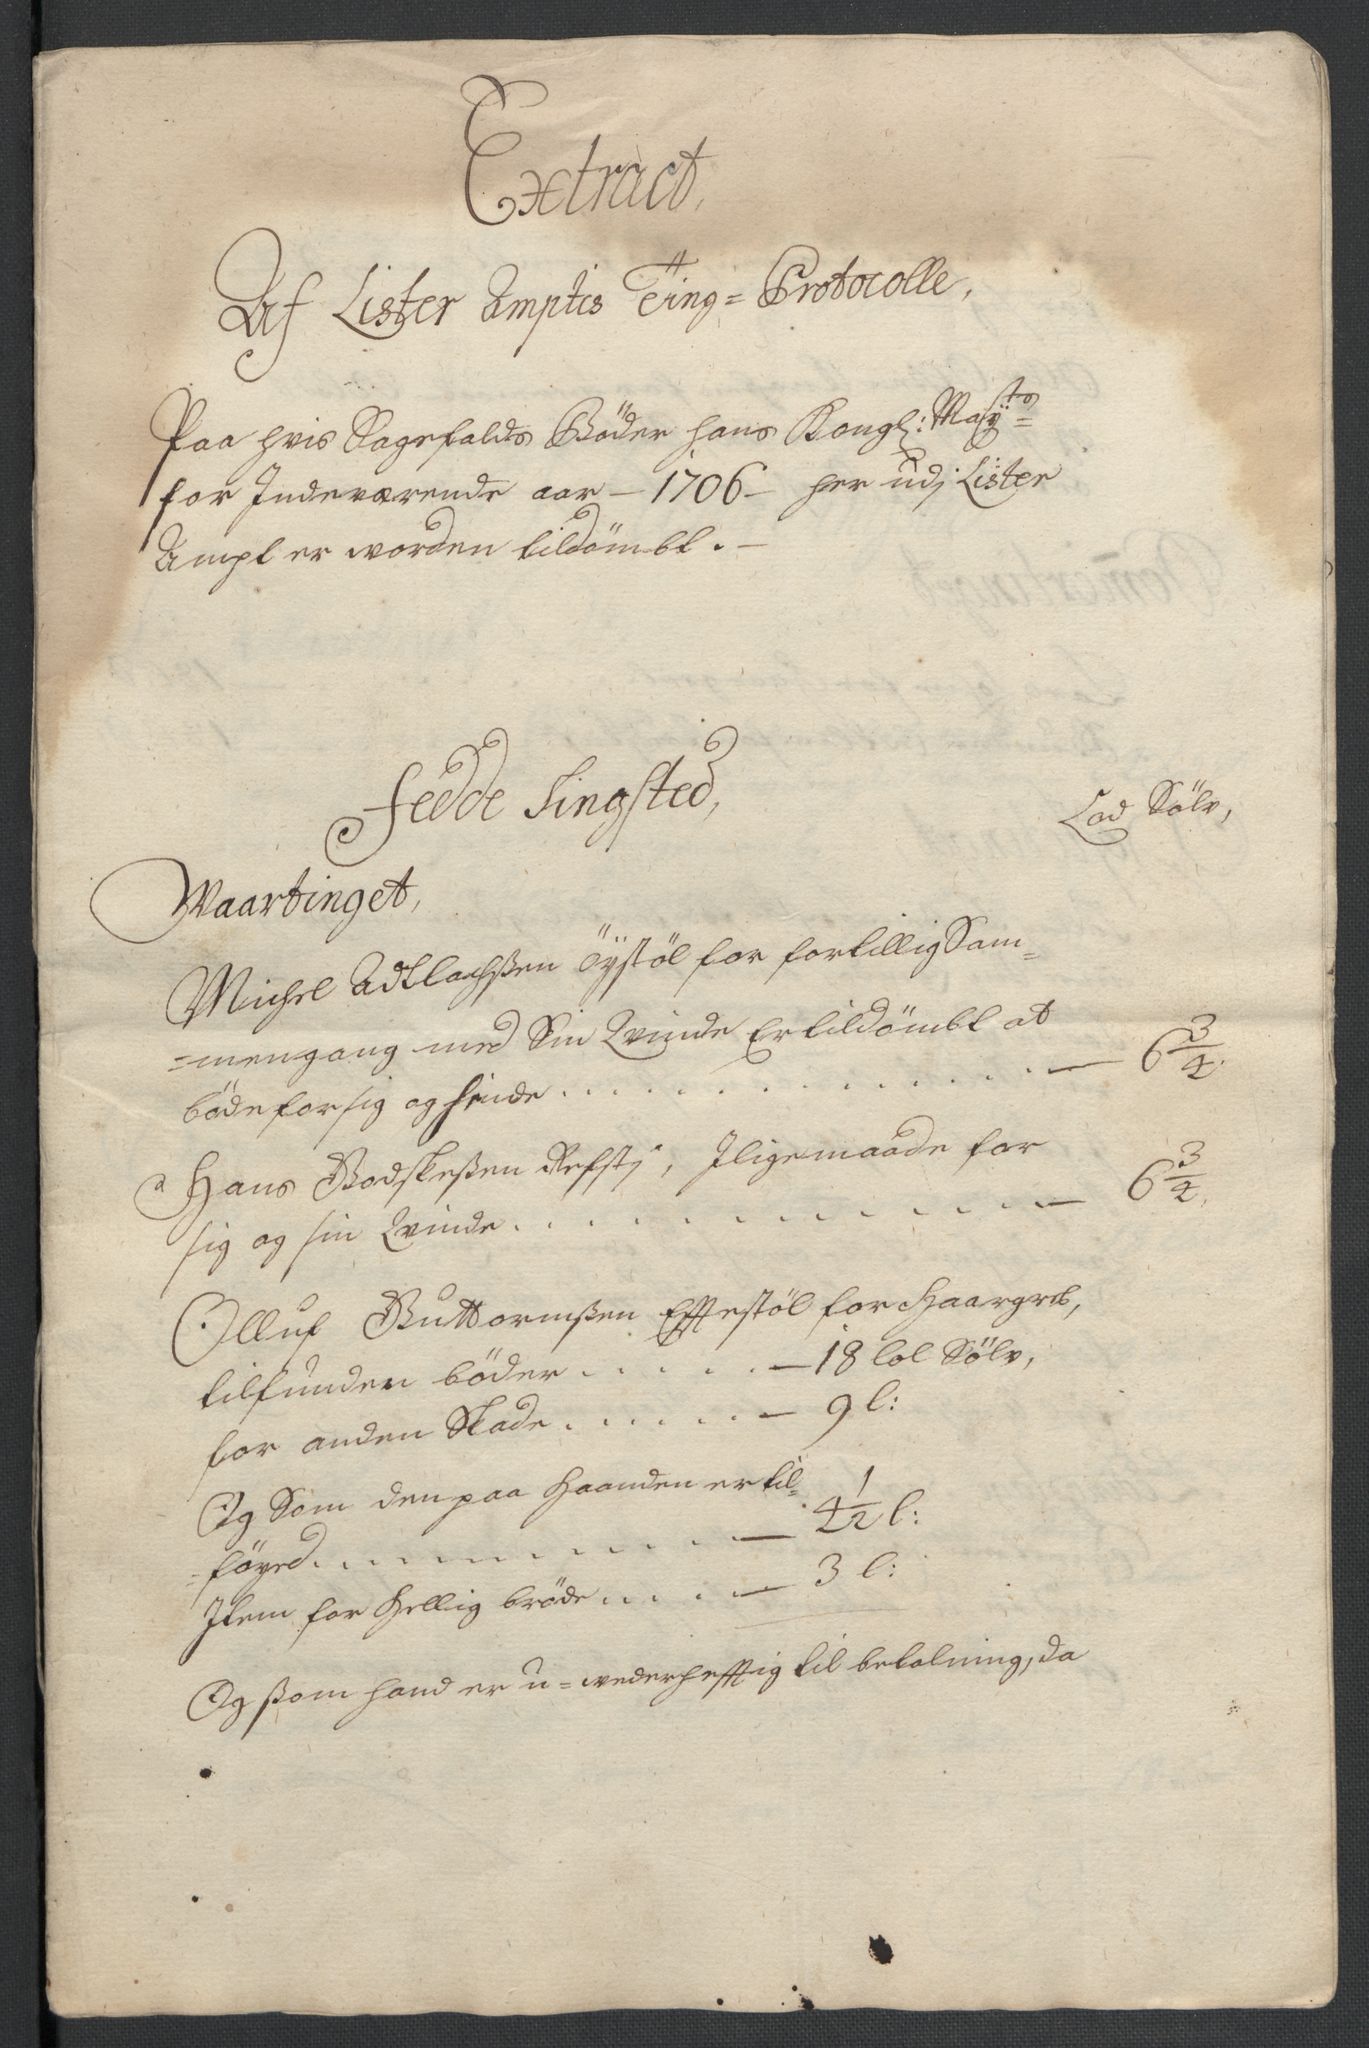 Extract,
Af Lister Ampts Ting= Protocolle,
Paa hvis Sagefalds Böder hans Kongl: Mayts=
for Indeværende aar – 1706 – her udj Lister
Ampt er worden tildömbt. –
Fedde Tingsted,
Lod Sölv,
Waartinget,
Michel Adtlachßen Öystöl for fortillig Sam=
=mengang med Sin Qvinde Er tildömbt at
böde for sig og hinde . . . . . . . . . . . . . — 6 3/4.
Hans Bodskeßen Refstj, Jligemaade for
sig og sin Qvinde . . . . . . . . . . . . — 6 3/4.
Olluf Guttormßen Effestöl for Haargreb,
tilfunden böder . . . . . — 18 lod Sölv,
for anden Skade . . . . . . — 9 l:
Og Som den paa Haanden er til=
=föyed . . . . . . . . . . . . — 4 1/2 l:
Jtem for Hellig bröde . . . . . — 3 l:
Og ßom hand er u=wederhefftig til betalning, da